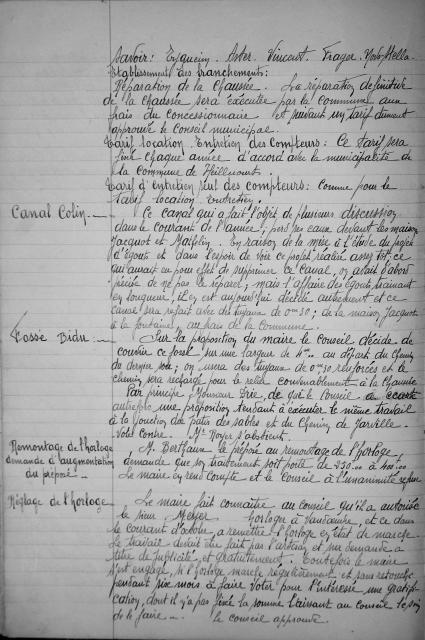 savoir: Vincent.
Etablissement des branchements:
Réparation de la Chaussée. La réparation définitive
de la chaussée sera exécutée par la commune aux
frais du concessionnaire et suivant un tarif dûment
approuvé le conseil municipal.
Tarif location Entretien des Compteurs: Ce tarif sera
fixé chaque année d'accord avec la municipalité de
la commune de Heillecourt.
Tarif d'entretien seul des compteurs: comme pour le
tarif location entretien.
Canal Colin. Ce canal qui a fait l'objet de plusieurs discussions
dans le courant de l'année; les eaux devant les maisons
Jacquot et En raison de la mise à l'étude du projet
d'égouts et dans l'espoir de voir ce projet réalisé assez tôt, ce
qui aurait eu pour effet de supprimer ce canal, on avait d'abord
décidé de ne pas le réparer; mais l'affaire des égouts trainant
en longueur, il en est aujourd'hui décidé autrement et ce
canal sera refait avec des tuyaux de 0m30; de la maison Jacquot
à la fontaine, au frais de la commune.
Fossé Bidru: Sur la proposition du maire le conseil décide de
couvrir ce fossé sur une largeur de au départ du chemin
du on mettra des tuyaux de 0m30 renforcés et le
chemin sera rechargé pour le relier convenablement à la chaussée
Par principe Monsieur que le Conseil a écarté
autrefois une proposition tendant à exécuter le même travail
à la jonction des des sables et du Chemin de Jarville.
Vote contre. Mr Noyer s'abstient.
Remontage de l'horloge
demande d'augmentation
du préposé
M. Berthaux le préposé au remontage de l'horloge,
demande que son traitement soit porté de à
Le maire en rend compte et le Conseil à l'unanimité refuse
Réglage de l'horloge Le maire fait connaître au conseil qu'il a autorisé
le sieur horloger à et ce dans
le courant d'octobre, à remettre l'horloge en état de marche
Le travail devait être fait par l'artisan et sur demande à
titre de publicité, et gratuitement. Toutefois le maire
s'est engagé, si l'horloge marche régulièrement et sans retouche
pendant six mois à faire voter pour l'intéressé une gratifi-
cation, dont il n'a pas fixé la somme laissant au conseil le soin
de le faire. le conseil approuve.